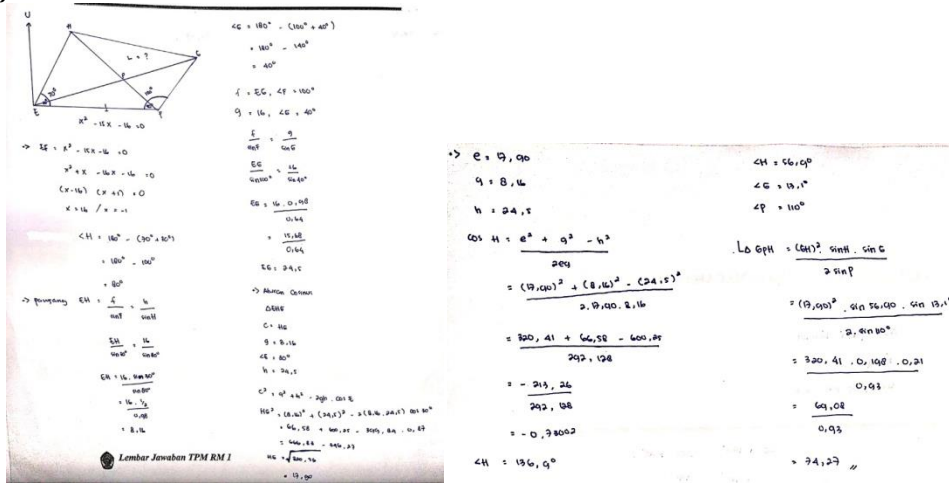 U
H
L = ?
G
P
E
F
x² - 15x - 16 = 0
=> EF = x² - 15x - 16 = 0
x² + x - 16x - 16 = 0
(x-16) (x+1) = 0
x = 16 / x = -1
<H = 180° - (70° + 30°)
= 180° - 100°
= 80°
=> panjang EH = f/sin F = h/sin H
EH/sin 30° = 16/sin 80°
EH = 16 . sin 30°/sin 80°
= 16 . ½/0,98
= 8,16
Lembar Jawaban TPM RM 1
<G = 180° - (100° + 40°)
= 180° - 140°
= 40°
f = EG, <F = 100°
g = 16, <G = 40°
f/sin F = g/sin G
EG/sin 100° = 16/sin 40°
EG = 16 . 0,98/0,64
= 15,68/0,64
EG = 24,5
=> Aturan Cosinus
ΔEHG
C = HG
g = 8,16
<E = 30°
h = 24,5
HG² = (8,16)² + (24,5)² - 2(8,16 . 24,5) cos 30°
= 66,58 + 600,25 - 399,84 . 0,87
HG =
= 17,90
=> e = 17,90
g = 8,16
h = 24,5
cos H = e² + g² - h²/2eg
= (17,90)² + (8,16)² - (24,5)²/2. 17,90. 8,16
= 320,41 + 66,58 - 600,25/292,128
= - 213,26/292,128
= - 0,73002
<H = 136,9°
<H = 56,9°
<G = 13,1°
<P = 110°
L∆ GPH = (GH)² . sin H . sin G/2 sin P
= (17,90)² . sin 56,90 . sin 13,1/2. sin 110°
= 320,41 . 0,198 . 0,21/0,93
= 69,08/0,93
= 74,27 //